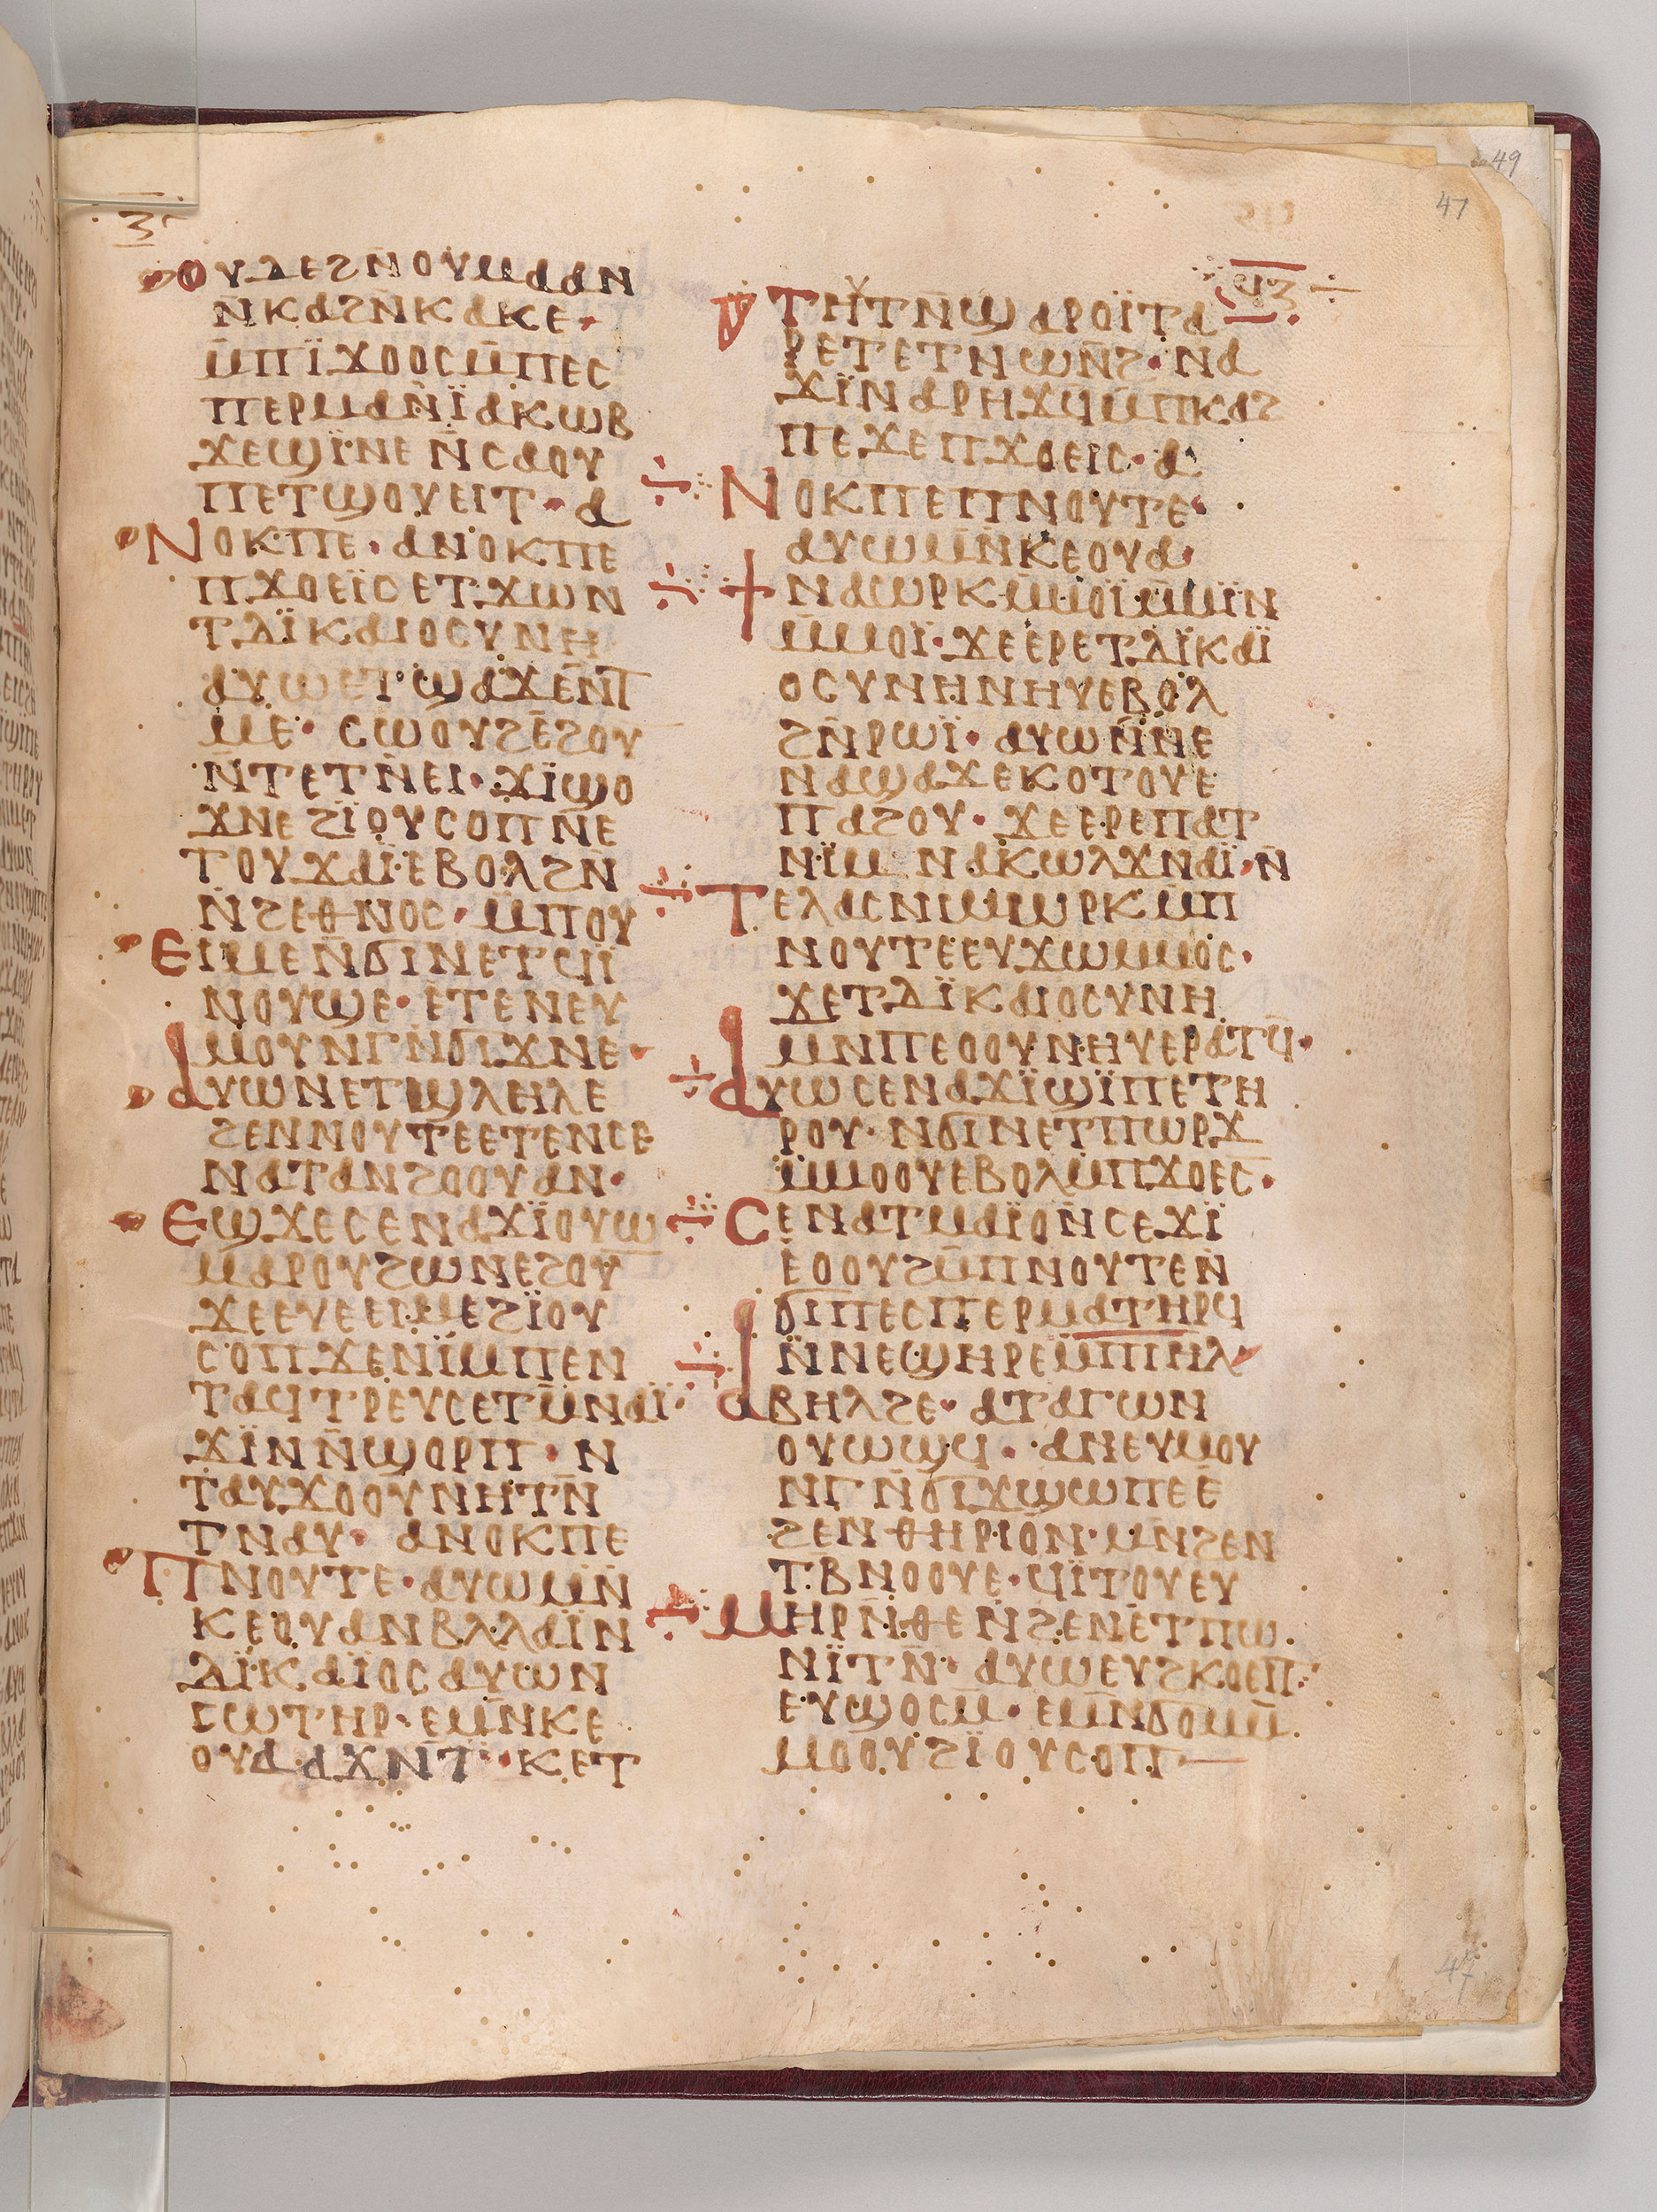 49
47
ⲍ
ϥⲍ
ⲟⲩⲇⲉϩⲛ̄ⲟⲩⲙⲁⲁⲛ
ⲛ̄ⲕⲁϩⲛ̄ⲕⲁⲕⲉ·
ⲙ̄ⲡⲓ̈ϫⲟⲟⲥⲙ̄ⲡⲉⲥ
ⲡⲉⲣⲙⲁⲛ̄ⲓ̈ⲁⲕⲱⲃ
ϫⲉϣⲓ̈ⲛⲉⲛ̄ⲥⲁⲟⲩ
ⲡⲉⲧϣⲟⲩⲉⲓⲧ· ⲁ
ⲛⲟⲕⲡⲉ· ⲁⲛⲟⲕⲡⲉ
ⲡϫⲟⲉⲓ̈ⲥⲉⲧϫⲱⲛ
ⲧⲇⲓ̈ⲕⲁⲓⲟⲥⲩⲛⲏ
ⲁⲩⲱⲉⲧϣⲁϫⲉⲛ̄ⲧ
ⲙⲉ· ⲥⲱⲟⲩϩⲉ̄ϩⲟⲩ
ⲛ̄ⲧⲉⲧⲛ̄ⲉⲓ· ϫⲓ̈ϣⲟ
ϫⲛⲉϩⲓ̈ⲟⲩⲥⲟⲡⲛⲉ
ⲧⲟⲩϫⲁⲓ̈ⲉⲃⲟⲗϩⲛ̄
ⲛ̄ϩⲉⲑⲛⲟⲥ· ⲙ̄ⲡⲟⲩ
ⲉⲓⲙⲉⲛ̄ϭⲓⲛⲉⲧϥⲓ̈
ⲛⲟⲩϣⲉ· ⲉⲧⲉⲛⲉⲩ
ⲙⲟⲩⲛⲅⲛ̄ϭⲓϫⲛⲉ·
ⲁⲩⲱⲛⲉⲧϣⲗⲏⲗⲉ
ϩⲉⲛⲛⲟⲩⲧⲉⲉⲧⲉⲛⲥⲉ
ⲛⲁⲧⲁⲛϩⲟⲟⲩⲁⲛ·
ⲉϣϫⲉⲥⲉⲛⲁϫⲓ̈ⲟⲩⲱ
ⲙⲁⲣⲟⲩϩⲱⲛⲉϩⲟⲩ
ϫⲉⲉⲩⲉⲉⲓⲙⲉϩⲓ̈ⲟⲩ
ⲥⲟⲡ· ϫⲉⲛⲓ̈ⲙⲡⲉⲛ
ⲧⲁϥⲧⲣⲉⲩⲥⲉⲧⲙ̄ⲛⲁⲓ̈·
ϫⲓ̈ⲛⲛ̄ϣⲟⲣⲡ· ⲛ
ⲧⲁⲩϫⲟⲟⲩⲛⲏⲧⲛ̄
ⲧⲛⲁⲩ· ⲁⲛⲟⲕⲡⲉ
ⲡⲛⲟⲩⲧⲉ· ⲁⲩⲱⲙⲛ̄
ⲕⲉⲟⲩⲁⲛⲃⲗⲗⲁⲓ̈ⲛ
ⲇⲓ̈ⲕⲁⲓ̈ⲟⲥⲁⲩⲱⲛ
ⲥⲱⲧⲏⲣ· ⲉⲙⲛ̄ⲕⲉ
ⲟⲩⲁ ⲁϫⲛ̄ⲧ· ⲕⲉⲧ
ⲧⲏⲩⲧⲛ̄ϣⲁⲣⲟⲓ̈ⲧⲁ
ⲣⲉⲧⲉⲧⲛⲱⲛ̄ϩ· ⲛⲁ
ϫⲓ̈ⲛⲁⲣⲏϫϥⲙ̄ⲡⲕⲁϩ
ⲡⲉϫⲉⲡϫⲟⲉⲓⲥ· ⲁ
ⲛⲟⲕⲡⲉⲡⲛⲟⲩⲧⲉ·
ⲁⲩⲱⲙⲛ̄ⲕⲉⲟⲩⲁ·
ϯⲛⲁⲱⲣⲕⲙ̄ⲙⲟⲓ̈ⲙ̄ⲙⲓ̈ⲛ
ⲙ̄ⲙⲟⲓ̈· ϫⲉⲉⲣⲉⲧⲇⲓ̈ⲕⲁⲓ̈
ⲟⲥⲩⲛⲏⲛⲏⲩⲉⲃⲟⲗ
ϩⲛ̄ⲣⲱⲓ̈· ⲁⲩⲱⲛ̄ⲛⲉ
ⲛⲁϣⲁϫⲉⲕⲟⲧⲟⲩⲉ
ⲡⲁϩⲟⲩ· ϫⲉⲉⲣⲉⲡⲁⲧ
ⲛⲓ̈ⲙ ⲛⲁⲕⲱⲗϫⲛⲁⲓ̈· ⲛ̄
ⲧⲉⲗⲁⲥⲛⲓⲙⲱⲣⲕⲙ̄ⲡ
ⲛⲟⲩⲧⲉⲉⲩϫⲱⲙⲙⲟⲥ·
ϫⲉⲧⲇⲓ̈ⲕⲁⲓⲟⲥⲩⲛⲏ
ⲙⲛⲡⲉⲟⲟⲩⲛⲏⲩⲉⲣⲁⲧϥ̄·
ⲁⲩⲱⲥⲉⲛⲁϫⲓ̈ϣⲓ̈ⲡⲉⲧⲏ
ⲣⲟⲩ· ⲛϭⲓⲛⲉⲧⲡⲱⲣϫ
ⲙ̄ⲙⲟⲟⲩⲉⲃⲟⲗⲙ̄ⲡϫⲟⲉⲥ·
ⲥⲉⲛⲁⲧⲙⲁⲓ̈ⲟⲛ̄ⲥⲉϫⲓ̈
ⲉⲟⲟⲩϩⲙ̄ⲡⲛⲟⲩⲧⲉⲛ̄
ϭⲓⲡⲉⲥⲡⲉⲣⲙⲁⲧⲏⲣϥ
ⲛ̄ⲛⲉϣⲏⲣⲉⲙ̄ⲡⲓⲏⲗ
ⲁⲃⲏⲗϩⲉ· ⲁⲧⲁⲅⲱⲛ
ⲟⲩⲱϣϥ· ⲁⲛⲉⲩⲙⲟⲩ
ⲛⲅⲛ̄ϭⲓϫϣⲱⲡⲉⲉ̄
ϩⲉⲛⲑⲏⲣⲓⲟⲛ· ⲙⲛ̄ϩⲉⲛ
ⲧⲃⲛⲟⲟⲩⲉ· ϥⲓ̈ⲧⲟⲩⲉⲩ
ⲙⲏⲣⲛ̄ⲑⲉⲛ̄ϩⲉⲛⲉⲧⲡⲱ
ⲛⲓ̈ⲧⲛ̄· ⲁⲩⲱⲉⲩϩⲕⲟⲉⲓⲧ·
ⲉⲩϣⲟⲥⲙ̄· ⲉⲙⲛ̄ϭⲟⲙⲙ̄
ⲙⲟⲟⲩϩⲓ̈ⲟⲩⲥⲟⲡ—
47